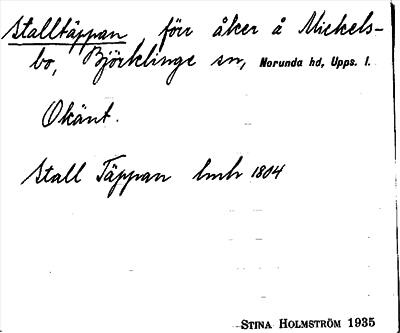 Stalltäppan förr åker å Mickels-
bo, Björklinge sn, Norunda hd, Upps. l.
Okänt.
Stall Täppan lmh 1804
STINA HOLMSTRÖM 1935